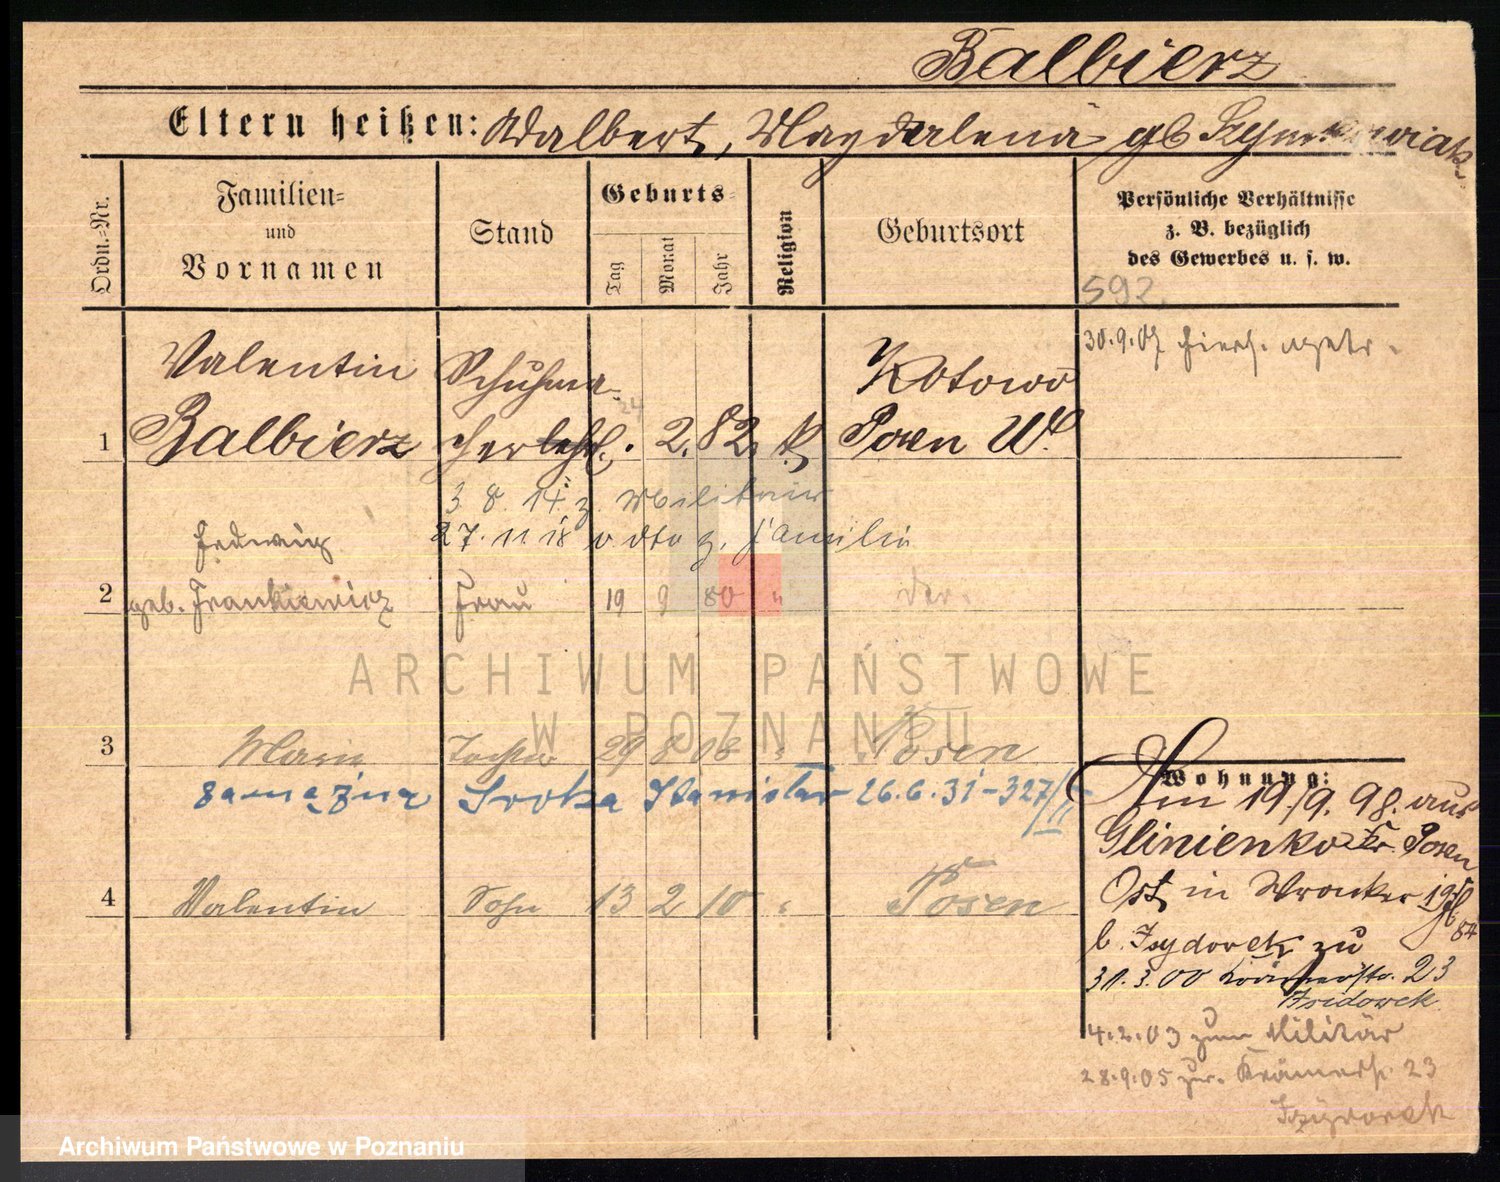 Balbierz
Eltern heißen: Walbert, Magdalena gb
Ordn.-Nr.
Familien- und Vornamen
Stand
Geburts-
Tag
Monat
Jahr
Religion
Geburtsort
Persönliche Verhältnisse
z. B. bezüglich
des Gewerbes u. s. w.
592.
30.9.07
Valentin Schuhma- Kotowo
1 Balbierz cher lehrl. 24. 2. 82. k Posen W.
3 8. 14 z. Militair
27. 11 18 z. Familie
Hedwig
2 geb. Frankiewicz Frau 19 9 80 "
ARCHIWUM PAŃSTWOWE
W POZNANIU
3 Maria Tochter 29 8 08 " Posen
zamężna Sroka Stanisław 26.6.31-327/II
4 Valentin Sohn 13 2 10 " Posen
Wohnung:
Am 19/9. 98. aus
Glinienko Kr. Posen
Ost, in Wronker
b. Isydorek zu
31.3.00 23
Isidorek
4.2.03 zum Militär
28.9.05 zur. Krämerstr. 23
Isydorek
Archiwum Państwowe w Poznaniu